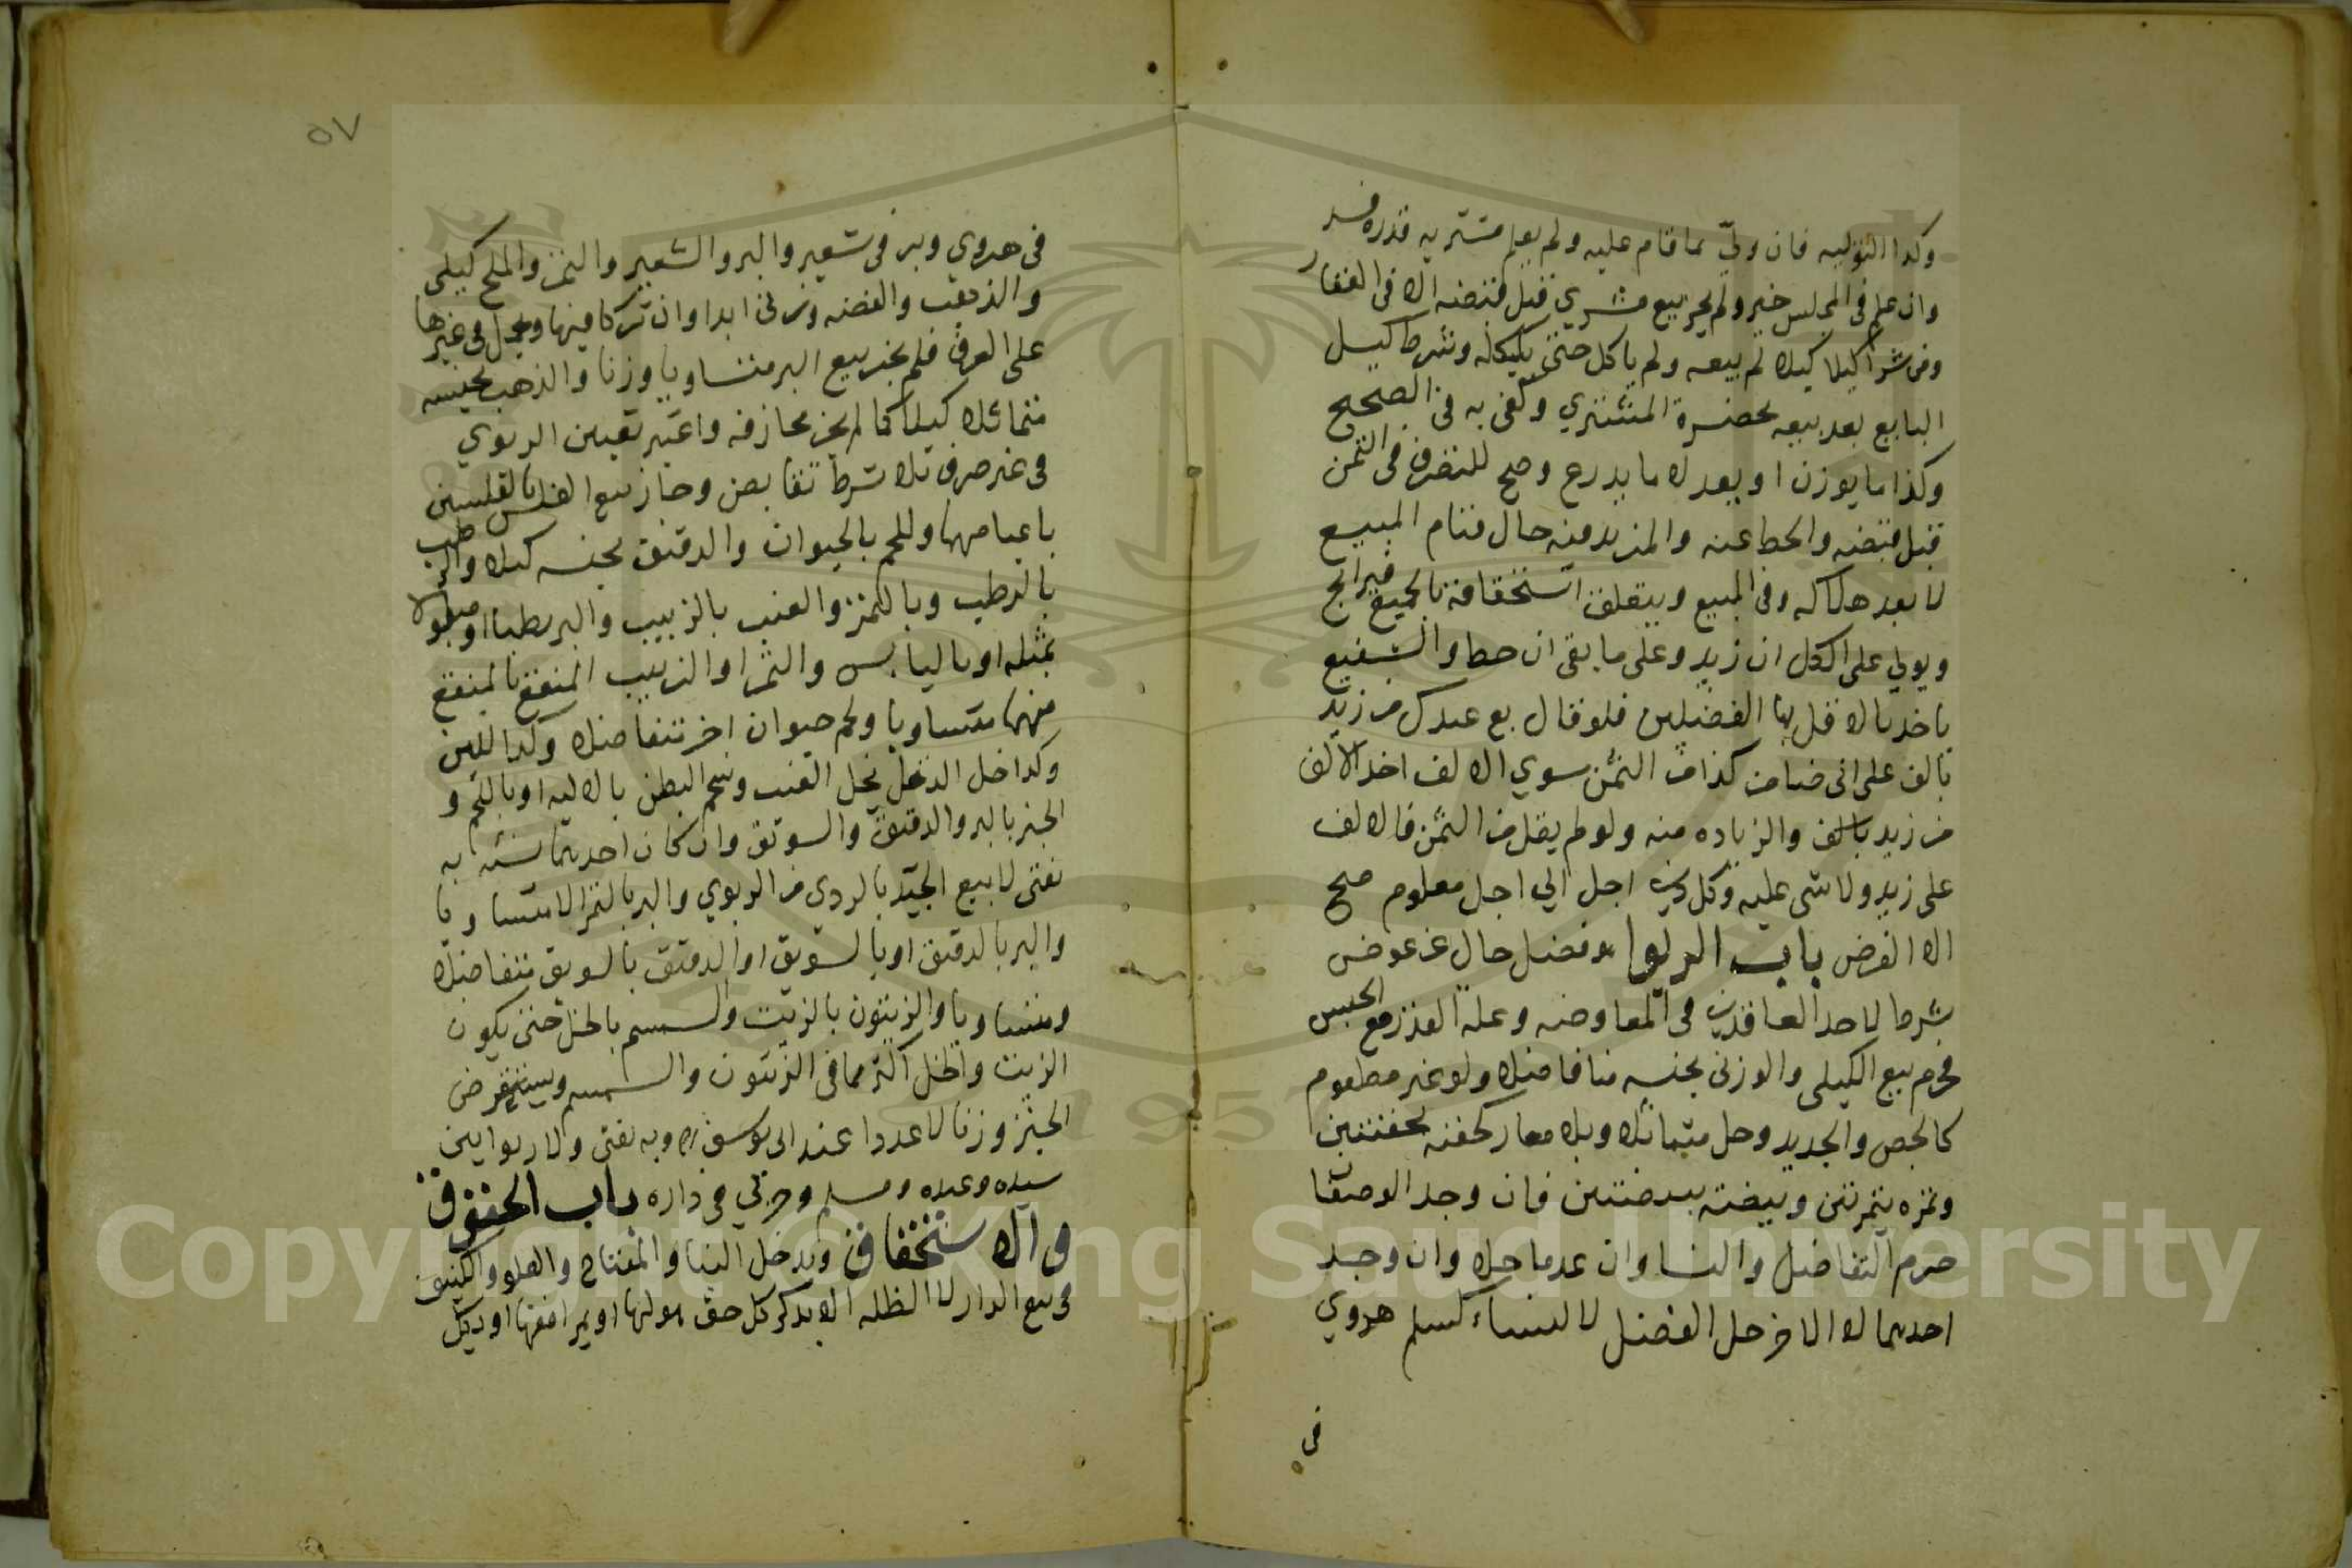 وكذا التوليه فان ولّي بما قام عليه ولم يعلم مشتريه قدره فسد
وان علم في المجلس خير ولم يجز بيع مشري قبل قبضه الا في العقار
ومن شرا كيلا كيلا لم يبعه ولم ياكل حتى يكيله وشرط كيل
البايع بعد بيعه بحضرة المشتري وكفى به في الصحيح
وكذا ما يوزن او يعد لا ما يدرع وصح للتصرف في الثمن
قبل قبضه والحط عنه والمزيد فيه حال قيام المبيع
لا بعد هلاكه وفي المبيع ويتعلق استحقاقه بالجميع فيرابح
ويولي على الكل ان زيد وعلى ما بقى ان حط والشفيع
ياخذ بالاقل في الفضلين فلو قال بع عبدك من زيد
بالف على اني ضامن كذا من الثمن سوي الالف اخذ الالف
من زيد بالف والزياده منه ولو لم يقل من الثمن فالالف
على زيد ولا شي عليه وكل دين اجل الي اجل معلوم صح
الا القرض باب الربوا هو فضل خال عن عوض
شرط لاحد العاقدين في المعاوضه وعلة القدر مع الجنس
فحرم بيع الكيلي والوزني بجنسه متفاضلا ولو غير مطعوم
كالجص والحديد وحل متماثلا وبلا معيار كحفنه بحفنتين
وتمره بتمرتين وبيضة ببيضتين فان وجد الوصفا
حرم التفاضل والنسا وان عدما حلا وان وجد
احديهما لا الاخر حل الفضل لا النساء كسلم هروي
في
٥٧
في هروي وبر في شعير والبر والشعير والتمر والملح كيلي
والذهب والفضه وزني ابدا وان تركا فيها ويحمل في غيرها
على العرف فلم يجز بيع البر متساويا وزنا والذهب بجنسه
متماثلا كيلا كما لم يجز مجازفه واعتبر تعيين الربوي
في غير صرف بلا شرط تقابض وجاز بيع الفلس بالفلسين
باعيانهما واللحم بالحيوان والدقيق بجنسه كيلا والرطب
بالرطب وبالتمر والعنب بالزبيب والبر رطبا او مبلولا
بمثله او باليابس والتمر او الزبيب المنقع بالمنقع
منهما متساويا ولحم حيوان اخر متفاضلا وكذا اللبن
وكذا خل الدقل بخل العنب وشحم البطن بالاليه او باللحم و
الخبز بالبر والدقيق والسويق وان كان احديهما نسئه به
يفتى لا بيع الجيّد بالردي من الربوي والبر بالتمر الا متساويا
والبر بالدقيق او بالسويق او الدقيق بالسويق متفاضلا
ومتساويا والزيتون بالزيت والسمسم بالحل حتى يكون
الزيت والحل اكثر مما في الزيتون والسمسم ويستقرض
الخبز وزنا لا عددا عند ابي يوسف ره وبه يفتى ولا ربوا بين
سيده وعبده ومسلم وحربي في داره باب الحقوق
والاستحقاق ويدخل البنا والمفتاح والعلو والكنيف
في بيع الدار لا الظله الا بذكر كل حق هو لها او بمرافقها او بكل